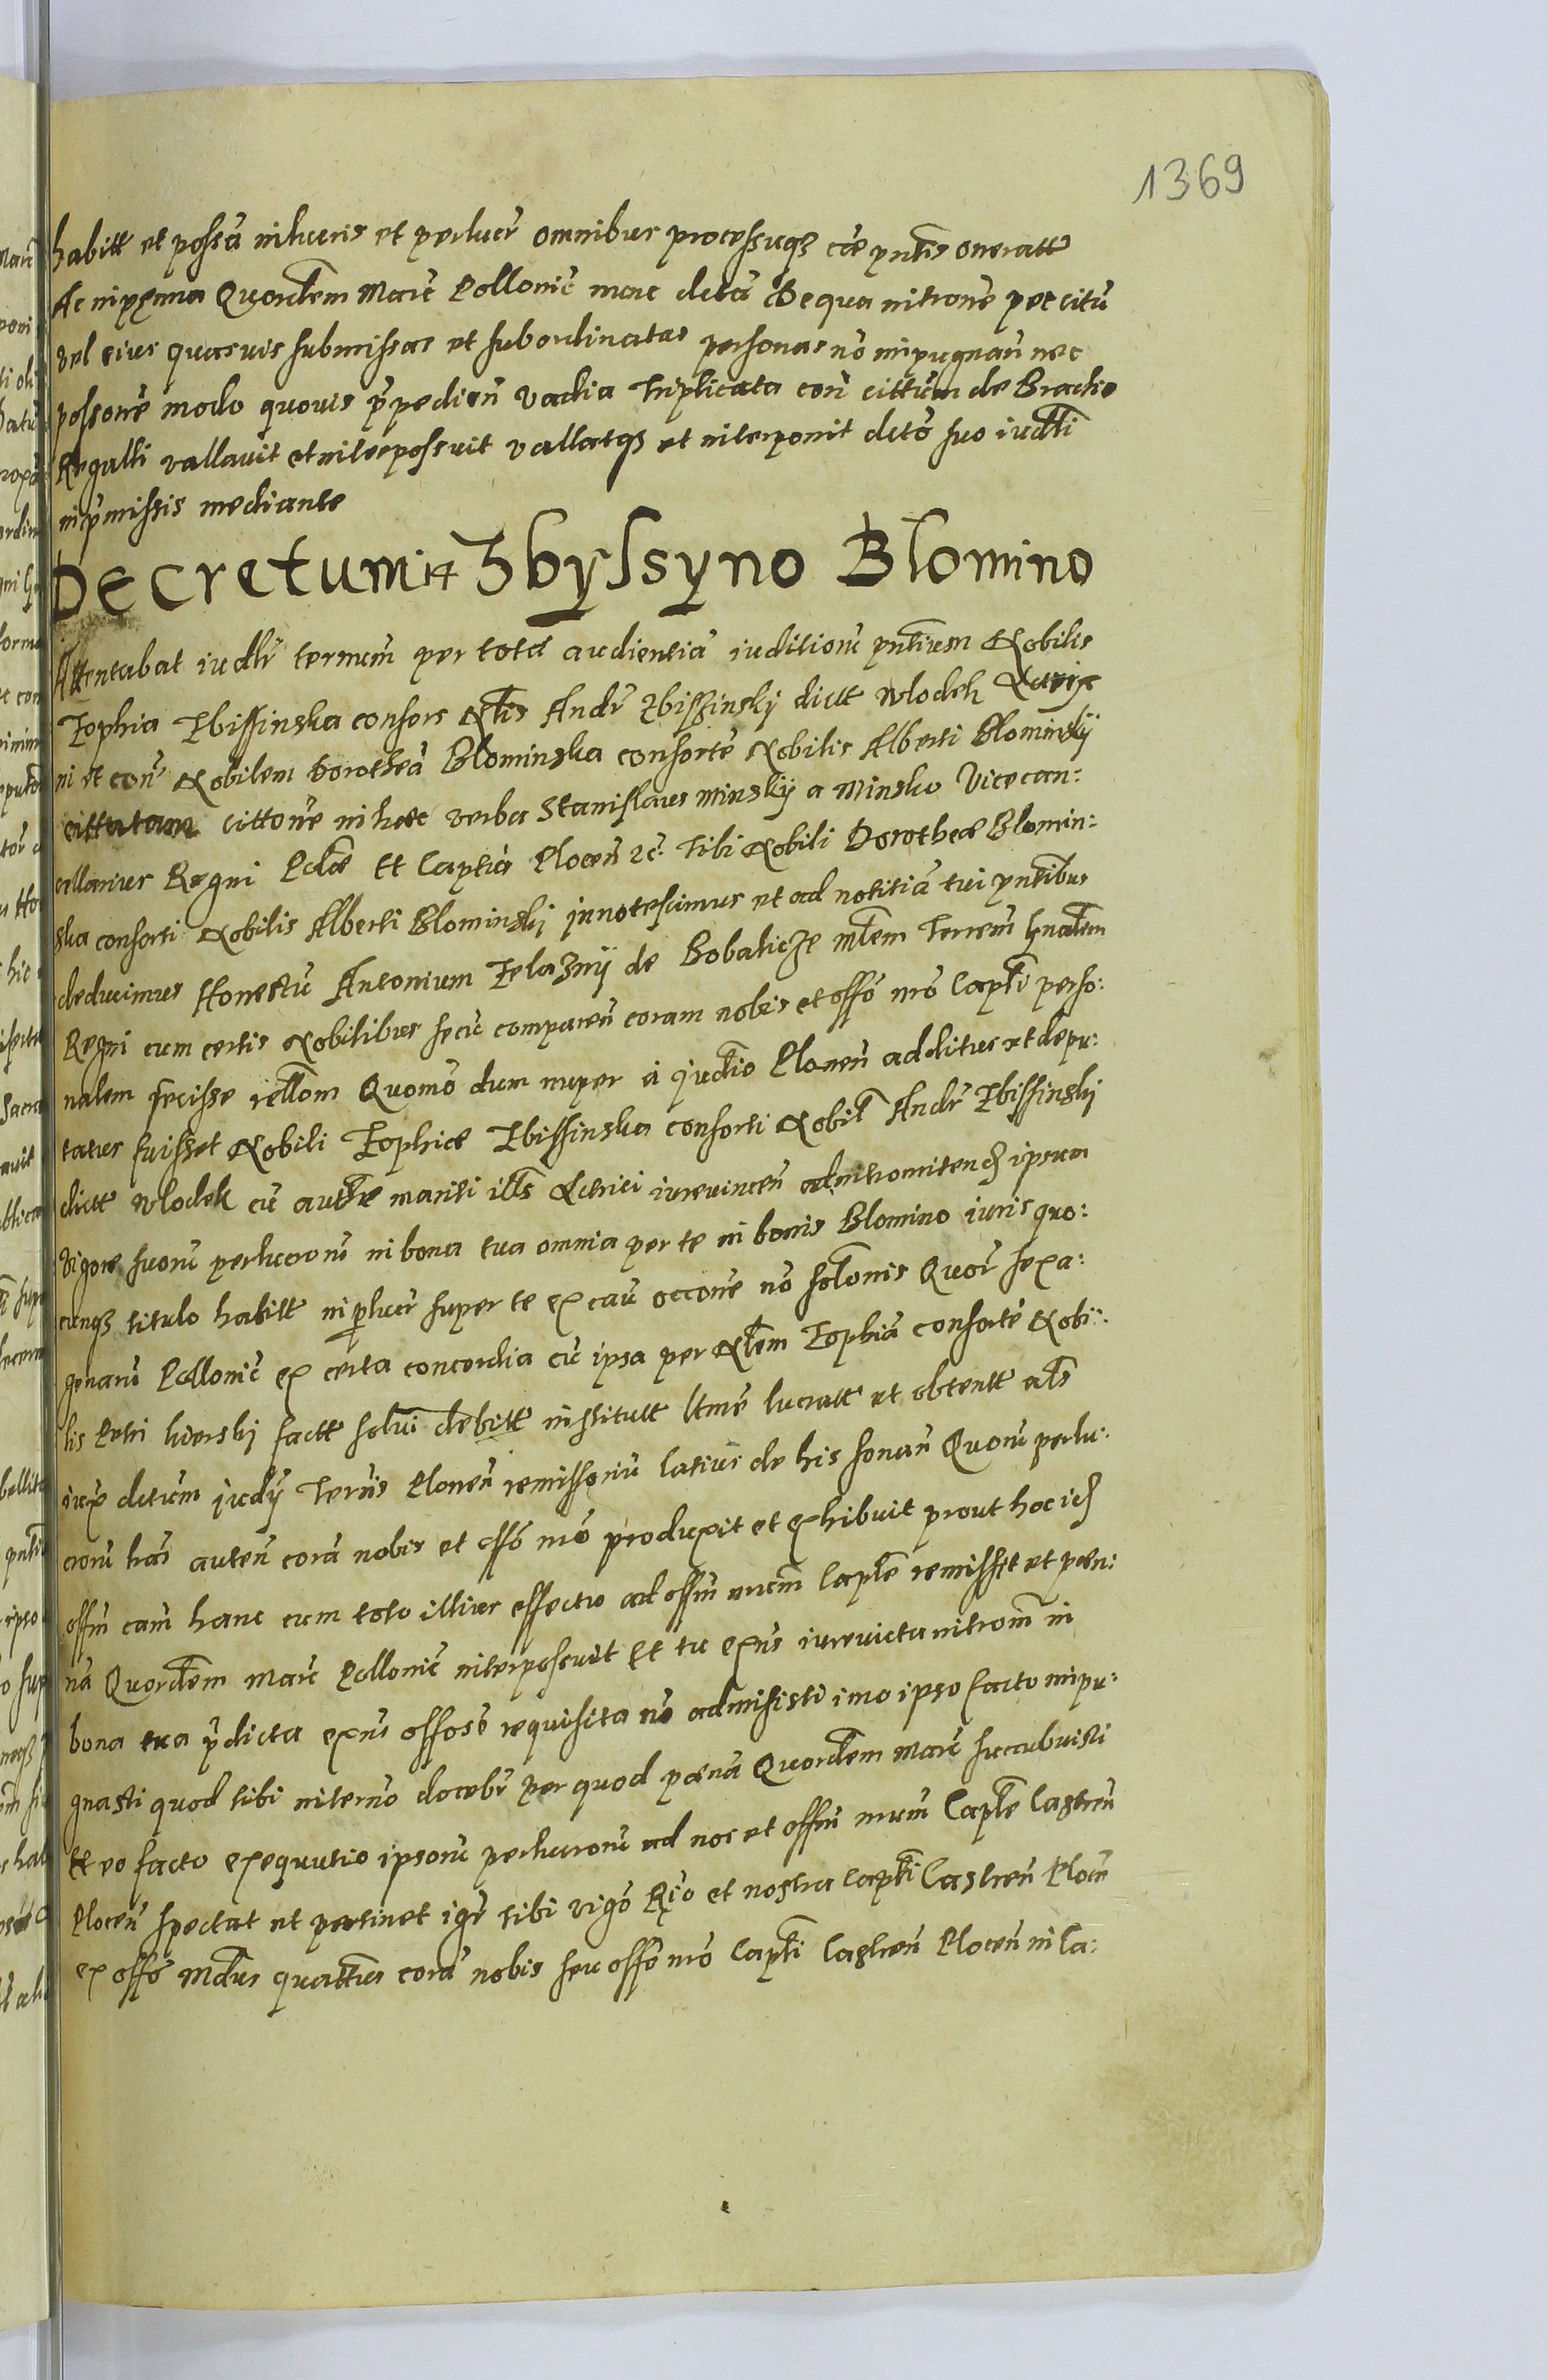 1369
habitt et possā in lucris et perlucr̄ omnibus processuqz cāe pn̄tis oneratt
Ac in pęnna Quordēm Marc̄ Pollonic̄ marc dctā De qua intronē per citū
vel eius quasuis submissas et subordinatas personas nō impugnan̄ nec
possonē modo quouis p̄pedien̄ vadia triplicata con̄ cittūm de Brachio
Regalli vallavit et interpossuit vallatqz et interponit dctō suo iudli
in p̄missis mediante
Decretum in Zbyssyno Blomino
Attentabat iudlr̄ termum per totā audientiā iuditionū pn̄tium Nobilis
Zophia Zbissinska consors Nlis Andr̄ Zbissinskij dictt Wlodek Actrix
in et con̄ Nobilem Dorotheā Blominska consortē Nobilis Alberti Blominskij
cittatam cittonē in hæc verba Stanislaus Minskij a Minsko Vicecan:
cellarius Regni Polæ Et Captus Plocen̄ 2c̄ Tibi Nobili Dorotheæ Blomin:
ska consorti Nobilis Alberti Blominskij innotescimus et ad notitiā tui pn̄tibus
deducimus Honestū Antonium Zelaznij de Bobalicze mlem Terrem̄ gnalem
Regni cum certis Nobilibus secū comparen̄ coram nobis et offō nrō Caplī perso:
nalem fecisse rellom̄ Quomō dum nuper a judtio Plonen̄ additus et depu:
tatus fuisset Nobili Zophiæ Zbissinska consorti Nobil̄ Andr̄ Zbissinskij
dictt Wlodek cū autħte mariti ills̄ Actrici iurevincen̄ ad intromitend ipsam
vigore suorū perlucrorū in bona tua omnia per te in bonis Blomino iuris quo:
cunqz titulo habitt in p̄lucr̄ super te ex cau occonē nō solōnis Quor̄ sexa:
genarū Pollonic̄ ex certa concordia cū ipsa per Nlem Zophiā consortē Nobi:
lis Petri Kierskj factt solvi debitt institutt Itmē lucratt et obtentt als̄
iux dctum judij Terris Plonen̄ remissoriū latius de his sonan̄ Quorū perlu:
crorū har̄ auten̄ corā nobis et offō nrō produxit et exhibuit prout hoc id
offm̄ cam̄ hanc cum toto illius effectu ad offm̄ nrum Caplē remisset et pæn:
nā Quordēm Marc̄ Pollonic̄ interposuit Et tu exn̄s iurevicta introm̄ in
bona tua p̄dicta exn̄s offosē requisita nō admisisti imo ipso facto impu:
gnasti quod tibi in termō docebr̄ per quod pænā Quordēm Marc̄ succubuisti
Et eo facto exequutio ipsorū perlucrorū ad nos et offm̄ nrum Caplē Castren̄
Plocen̄ spectat et pertinet igr̄ tibi vigō Rio et nostra Caplī Castren̄ Plocen̄
ex offō Mdmus quattus corā nobis seu offō nrō Caplī Castren̄ Plocen̄ in Ca: